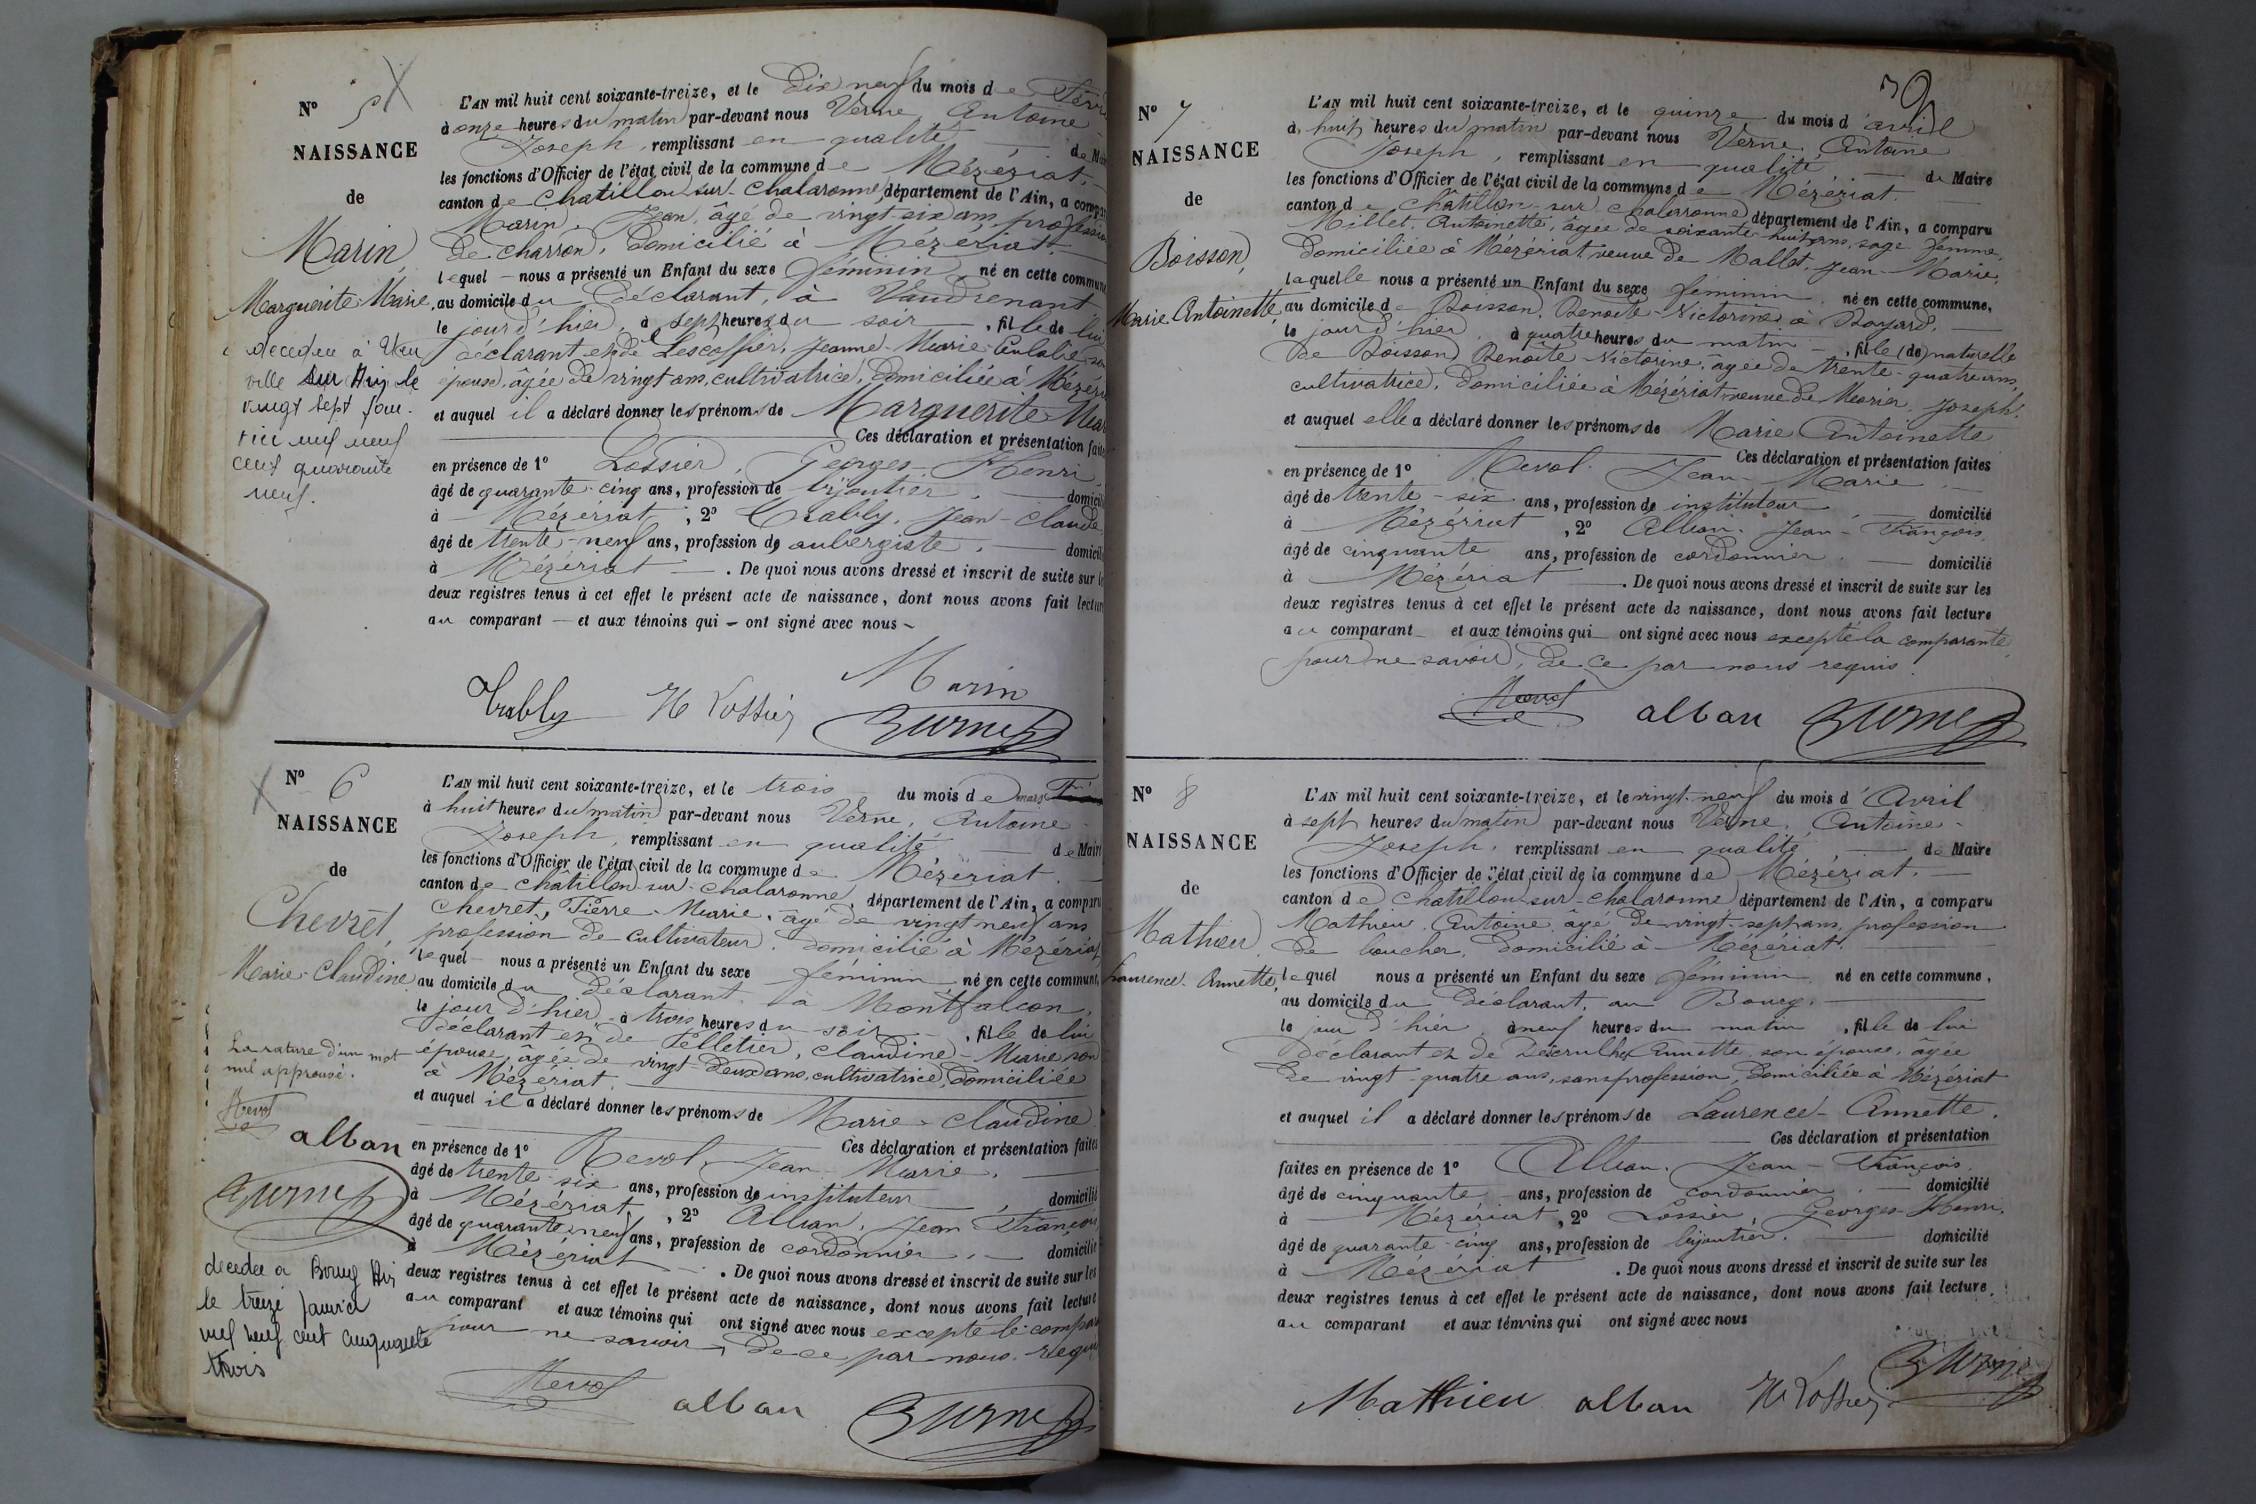 N° 5
NAISSANCE
de
Marin
Marguerite Marie
décédée à
ville sur le
vingt sept jan-
vier mil neuf
cent quarante
neuf.
L'AN mil huit cent soixante-treize, et le dix neuf du mois de
à onze heures du matin par-devant nous Verne Antoine
Joseph, remplissant en qualité de
les fonctions d'Officier de l'état civil de la commune de Mézériat.
canton de Chatillon sur Chalaronne, département de l'Ain, a
Marin, Jean, âgé de vingt six ans,
de charron, domicilié à Mézériat
lequel nous a présenté un Enfant du sexe féminin, né en cette commune
au domicile du déclarant, à Vaudrenant
le jour d'hier, à sept heures du soir, fille de lui
déclarant et de Lescoffier, Jeanne-Marie-Eulalie, son
épouse, âgée de vingt ans, cultivatrice, domiciliée à
et auquel il a déclaré donner les prénoms de Marguerite
Ces déclaration et présentation
en présence de 1° Lossier, Georges-Henri,
âgé de quarante-cinq ans, profession de bijoutier,
à Mézériat, 2° Trably, Jean-Claude
âgé de trente-neuf ans, profession de aubergiste,
à Mézériat. De quoi nous avons dressé et inscrit de suite sur
deux registres tenus à cet effet le présent acte de naissance, dont nous avons fait lecture
au comparant et aux témoins qui ont signé avec nous
Marin
Trably H Lossier Verne
N° 6
NAISSANCE
de
Chevret,
Marie-Claudine
La rature d'un mot
nul approuvé.
Revol
alban
Verne
décédée à Bourg
le treize janvier
mil neuf cent cinquante
trois
L'AN mil huit cent soixante-treize, et le trois du mois de mars
à huit heures du matin par-devant nous Verne, Antoine
Joseph, remplissant en qualité de Maire
les fonctions d'Officier de l'état civil de la commune de Mézériat.
canton de Châtillon sur Chalaronne, département de l'Ain, a comparu
Chevret, Pierre-Marie, âgé de vingt neuf ans
profession de cultivateur, domicilié à Mézériat,
lequel nous a présenté un Enfant du sexe féminin, né en cette commune,
au domicile du déclarant, à Montfalcon,
le jour d'hier à trois heures du soir, fille de lui
déclarant et de Pelletier, Claudine-Marie son
épouse, âgée de vingt-deux ans, cultivatrice, domiciliée
à Mézériat.
et auquel il a déclaré donner les prénoms de Marie-Claudine
Ces déclaration et présentation faites
en présence de 1° Revol, Jean Marie,
âgé de trente-six ans, profession de instituteur, domicilié
à Mézériat, 2° Alban, Jean François
âgé de quarante-neuf ans, profession de cordonnier, domicilié
à Mézériat. De quoi nous avons dressé et inscrit de suite sur les
deux registres tenus à cet effet le présent acte de naissance, dont nous avons fait lecture
au comparant et aux témoins qui ont signé avec nous excepté le
pour ne savoir, de ce par nous
Revol alban Verne
39
N° 7
NAISSANCE
de
Boisson,
Marie Antoinette
L'AN mil huit cent soixante-treize, et le quinze du mois d'avril
à huit heures du matin par-devant nous Verne, Antoine
Joseph, remplissant en qualité de Maire
les fonctions d'Officier de l'état civil de la commune de Mézériat.
canton de Châtillon sur Chalaronne département de l'Ain, a comparu
Millet, Antoinette, âgée de soixante-huit ans, sage femme,
domiciliée à Mézériat, veuve de Mallet, Jean-Marie,
laquelle nous a présenté un Enfant du sexe féminin, né en cette commune,
au domicile de Boisson, Benoîte-Victorine, à
le jour d'hier, à quatre heures du matin, fille (de) naturelle
de Boisson Benoîte Victorine, âgée de trente-quatre ans,
cultivatrice, domiciliée à Mézériat, veuve de Morier, Joseph.
et auquel elle a déclaré donner les prénoms de Marie Antoinette
Ces déclaration et présentation faites
en présence de 1° Revol. Jean-Marie
âgé de trente-six ans, profession de instituteur domicilié
à Mézériat, 2° Alban, Jean-François,
âgé de cinquante ans, profession de cordonnier. domicilié
à Mézériat. De quoi nous avons dressé et inscrit de suite sur les
deux registres tenus à cet effet le présent acte de naissance, dont nous avons fait lecture
au comparant et aux témoins qui ont signé avec nous excepté la comparante,
pour ne savoir, de ce par nous requis
Revol alban Verne
N° 8
NAISSANCE
de
Mathieu
Laurence-Annette
L'AN mil huit cent soixante-treize, et le vingt-neuf du mois d'Avril
à sept heures du matin par-devant nous Verne, Antoine-
Joseph, remplissant en qualité de Maire
les fonctions d'Officier de l'état civil de la commune de Mézériat.
canton de Chatillon sur Chalaronne département de l'Ain, a comparu
Mathieu, Antoine âgé de vingt-sept ans, profession
de boucher, domicilié à Mézériat.
lequel nous a présenté un Enfant du sexe féminin né en cette commune,
au domicile du déclarant, au Bourg.
le jour d'hier, à neuf heures du matin, fille de lui
déclarant et de Annette, son épouse, âgée
de vingt-quatre ans, sans profession, domiciliée à Mézériat
et auquel il a déclaré donner les prénoms de Laurence-Annette.
Ces déclaration et présentation
faites en présence de 1° Alban, Jean-François,
âgé de cinquante ans, profession de cordonnier. domicilié
à Mézériat, 2° Lossier, Georges-Henri,
âgé de quarante-cinq ans, profession de bijoutier. domicilié
à Mézériat. De quoi nous avons dressé et inscrit de suite sur les
deux registres tenus à cet effet le présent acte de naissance, dont nous avons fait lecture
au comparant et aux témoins qui ont signé avec nous
Mathieu alban H Lossier Verne